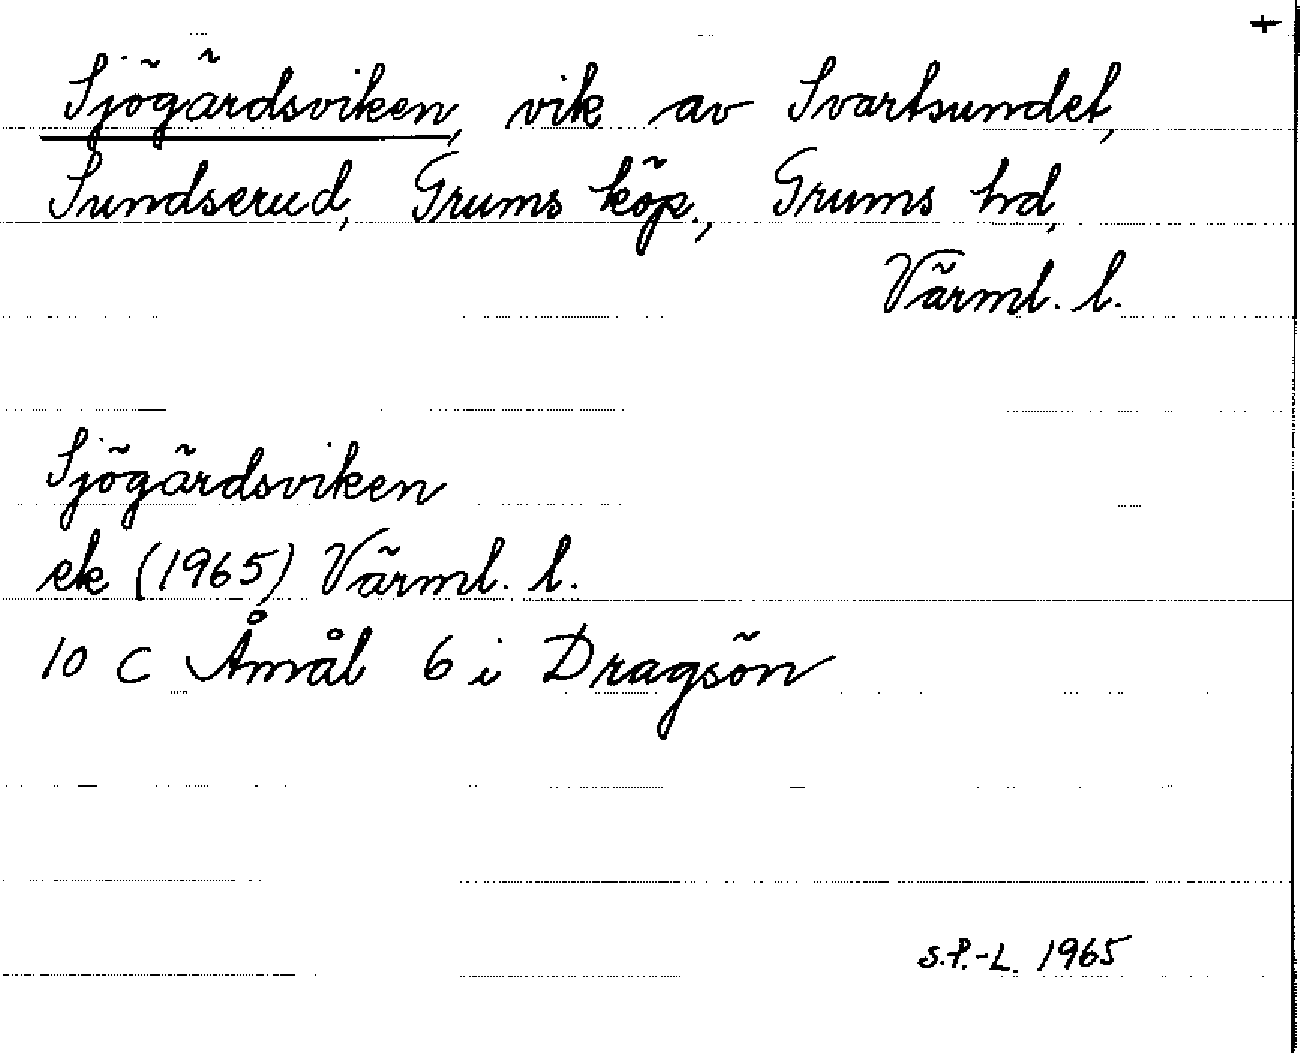 +
Sjögärdsviken, vik av Svartsundet,
Sundserud, Grums köp., Grums hd,
Värml. l.
Sjögärdsviken
ek (1965) Värml. l.
10 C Åmål 6 i Dragsön
S.P.-L. 1965